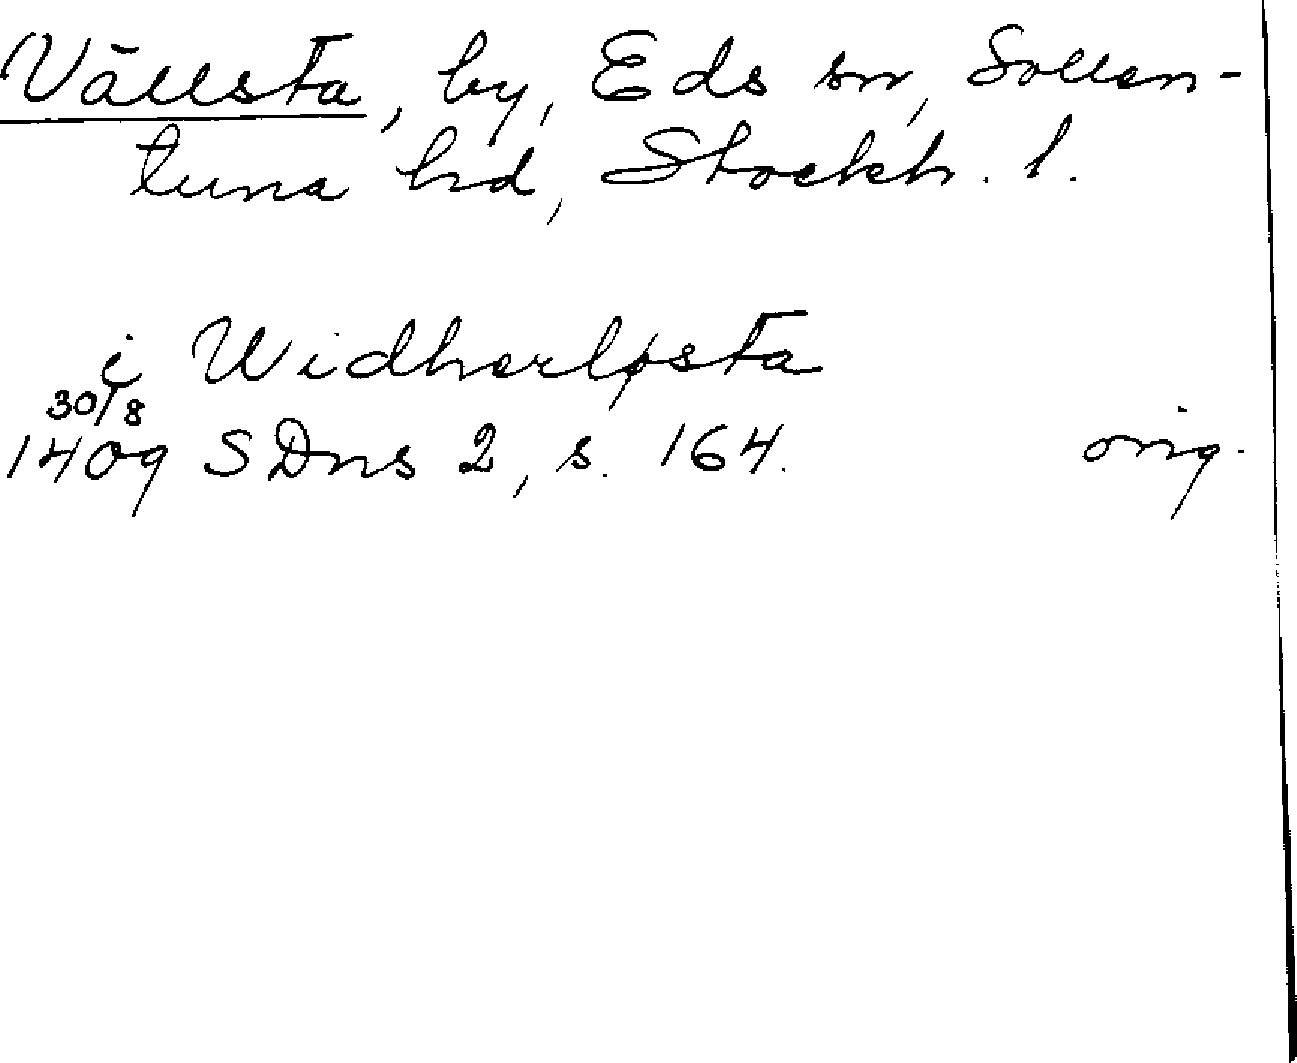 Vällsta, by, Eds sn, Sollen-
tuna hd, Stockh. l.
i Widherløsta
30/8
1409 SDns 2, s. 164. orig.